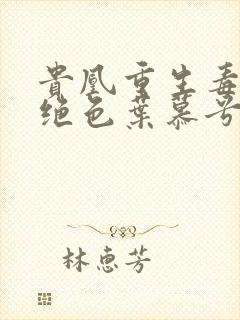 貴凰重生毒
绝色葉慕兮
林惠芳